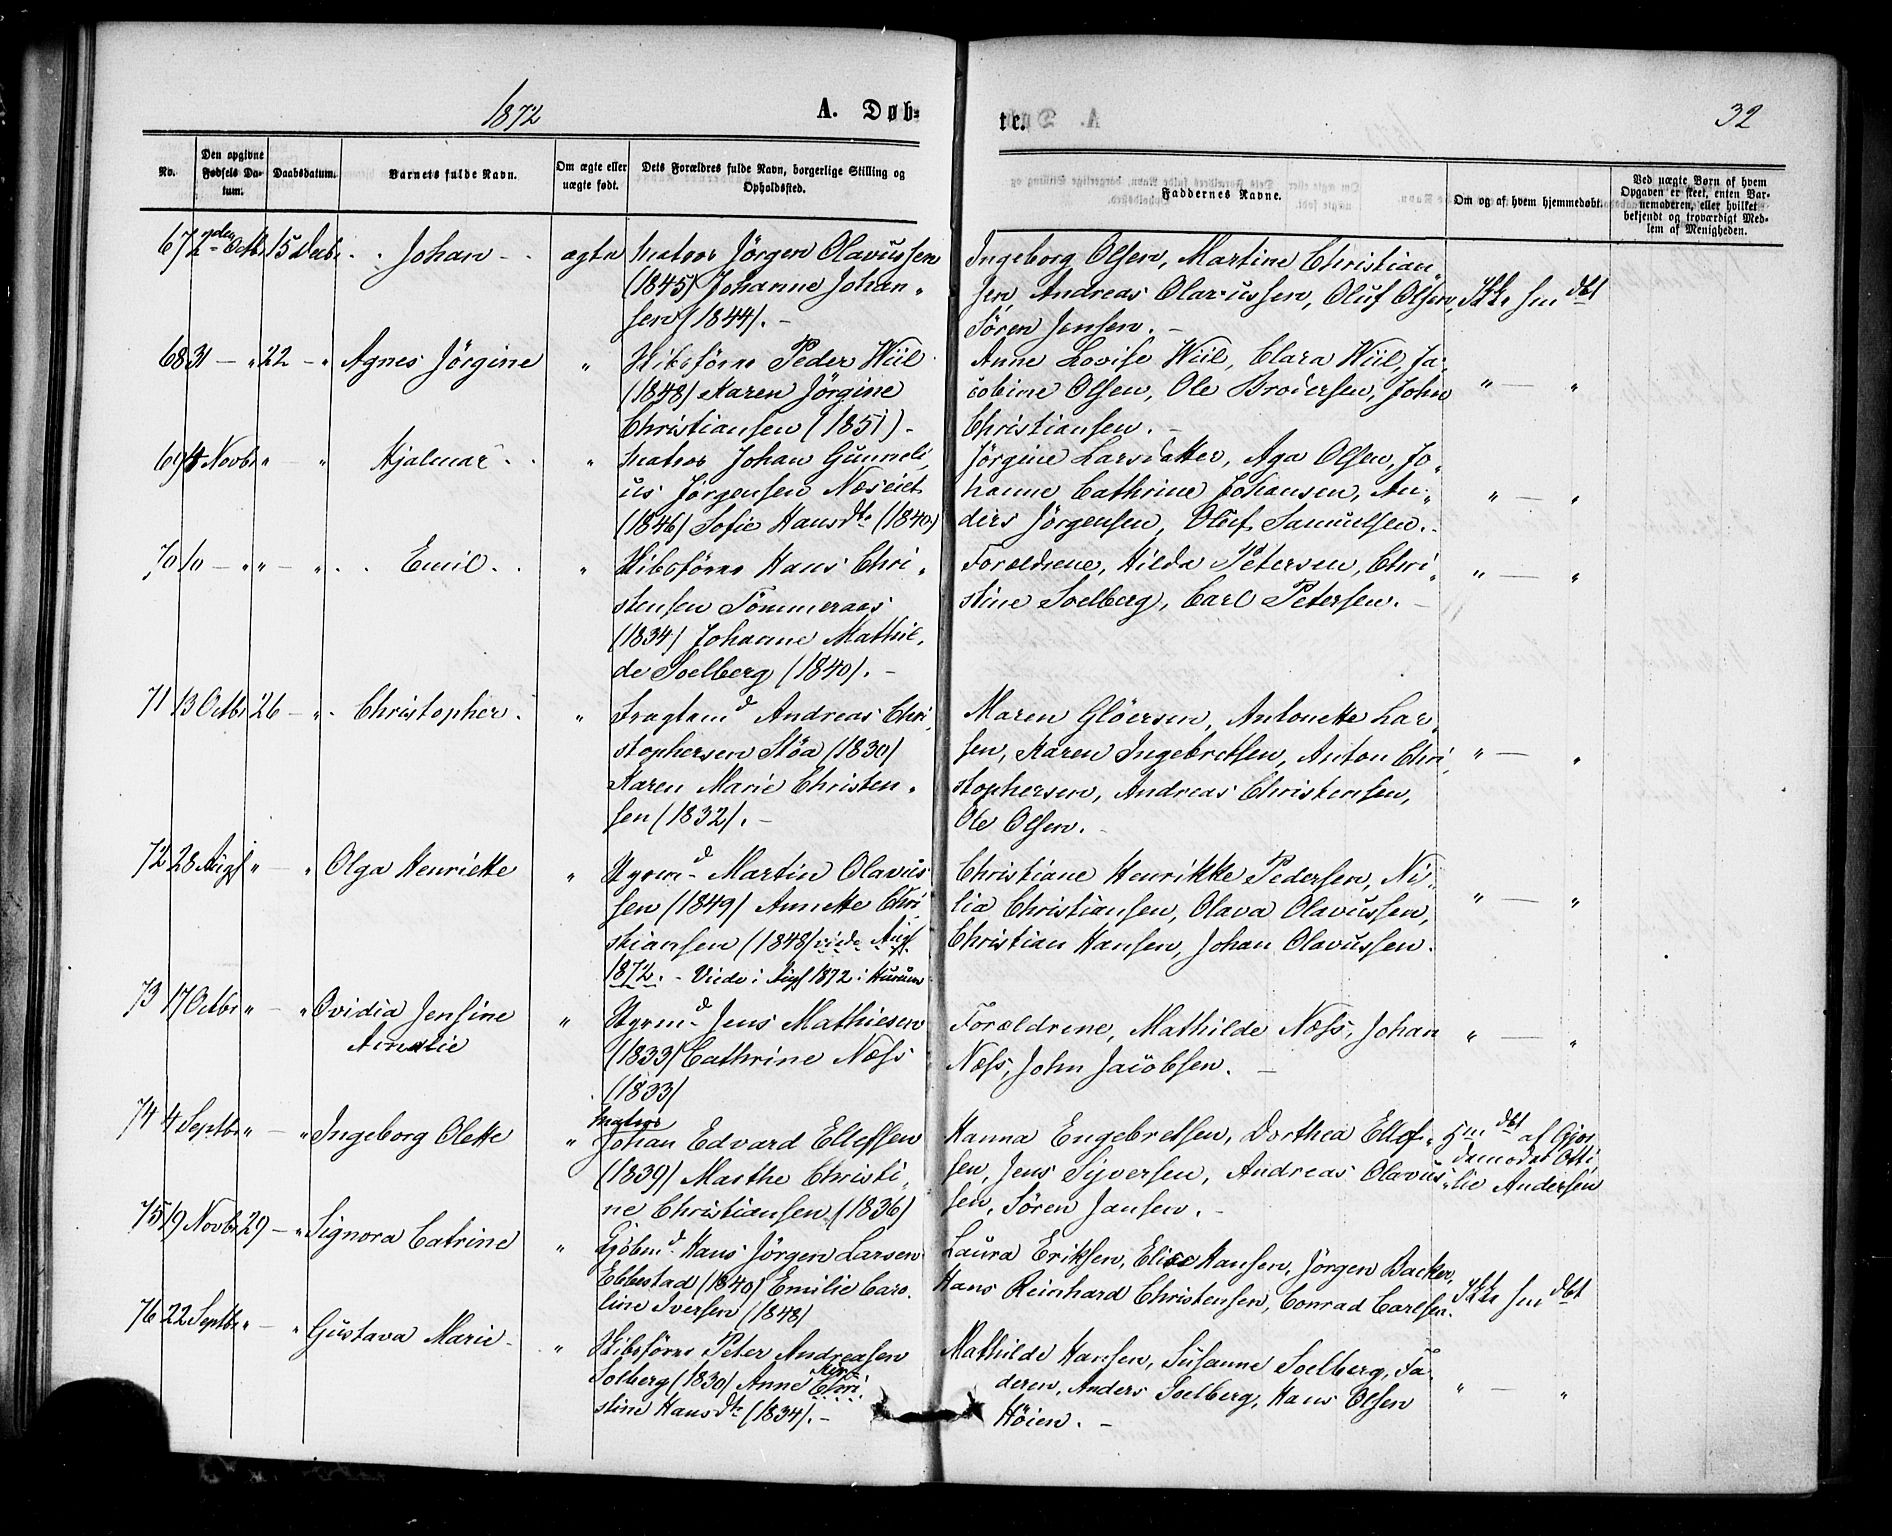 1872
A. Døb-
te.
32
No.
Den opgivne Fødsels Da-tum.
Daabsdatum.
Barnets fulde Navn.
Om ægte eller uægte født.
Dets Forældres fulde Navn, borgerlige Stilling og Opholdssted.
Faddernes Navne.
Om og af hvem hjemmedøbt.
Ved uægte Børn af hvem Opgaven er skeet, enten Bar-nemoderen, eller hvilket bekjendt og troværdigt Med-lem af Menigheden.
67 2den Octbr 15 Decbr. Johan ægte Matros Jörgen Olavussen
(1845) Johanne Johan-
sen (1844). -
Ingeborg Olsen, Martine Christian-
sen, Andreas Olavussen, Oluf Olsen, Ikke hmdbt
Sören Jensen. -
68 31 - " 22 - " Agnes Jörgine " Skibsförer Peder Wiil
(1848) Karen Jörgine
Christiansen (1851) -
Anne Lovise Wiil, Clara Wiil, Ja-
cobine Olsen, Ole Brodersen, John " — "
Christiansen. -
69 4 Novbr " - " Hjalmar " Matros Johan Gunneli-
us Jörgensen Næseiet
(1846) Sofie Hansdtr (1840)
Jörgine Larsdatter, Aga Olsen, Jo-
hanne Cathrine Johansen, An- " — "
ders Jörgensen, Oluf Samuelsen.
70 10 - " " - " Emil " Skibsförer Hans Chri-
stensen Tömmeraas
(1834) Johanne Mathil-
de Soelberg (1840). -
Forældrene, Hilda Petersen, Chri- " — "
stine Soelberg, Carl Petersen. -
71 13 Octbr 26 - " Christopher " Fragtemd Andreas Chri-
stophersen Stöa (1830)
Karen Marie Christen-
sen (1832). -
Maren Glöersen, Antonette Lar-
sen, Karen Ingebretsen, Anton Chri- " — "
stophersen, Andreas Christensen,
Ole Olsen. -
72 28 Augs " - " Olga Henriette " Styrmd Martin Olavus
sen (1849) Annette Chri-
stiansen (1848) vide Augs
1872. - Viede i Augs 1872 i Hurum
Christiane Henrikke Pedersen, Ni-
lia Christiansen, Olava Olavussen, " — "
Christian Hansen, Johan Olavussen.
73 17 Octbr " - " Ovidia Jensine " Styrmd Jens Mathiesen
Amalie
(1833) Cathrine Næss
(1833)
Forældrene, Mathilde Næss, Johan " — "
Næss, John Jacobsen. -
74 4 Septbr " - " Ingeborg Olette " Matros
Johan Edvard Ellefsen
(1839) Marthe Christi-
ne Christiansen (1836)
Hanna Engebretsen, Dorthea Ellef- hmdbt af Gjor
sen, Jens Syversen, Andreas Olavus- demoder Otti
sen, Sören Jansen. - lie Andersen
75 19 Novbr 29 - " Signora Catrine " Kjöbmd Hans Jörgen Larsen
Ebbestad (1840) Emilie Caro-
line Iversen (1848)
Laura Eriksen, Elise Hansen, Jörgen Backer,
Hans Reinhard Christensen, Conrad Carlsen. Ikke hmdbt
76 22 Septbr " - " Gustava Marie - " Skibsförer Peter Andreasen
Solberg (1830) Anne Chri-
stine Hansdtr (1834). -
Mathilde Hansen, Susanne Soelberg, Fa-
deren, Anders Soelberg, Hans Olsen " — "
Höien. -